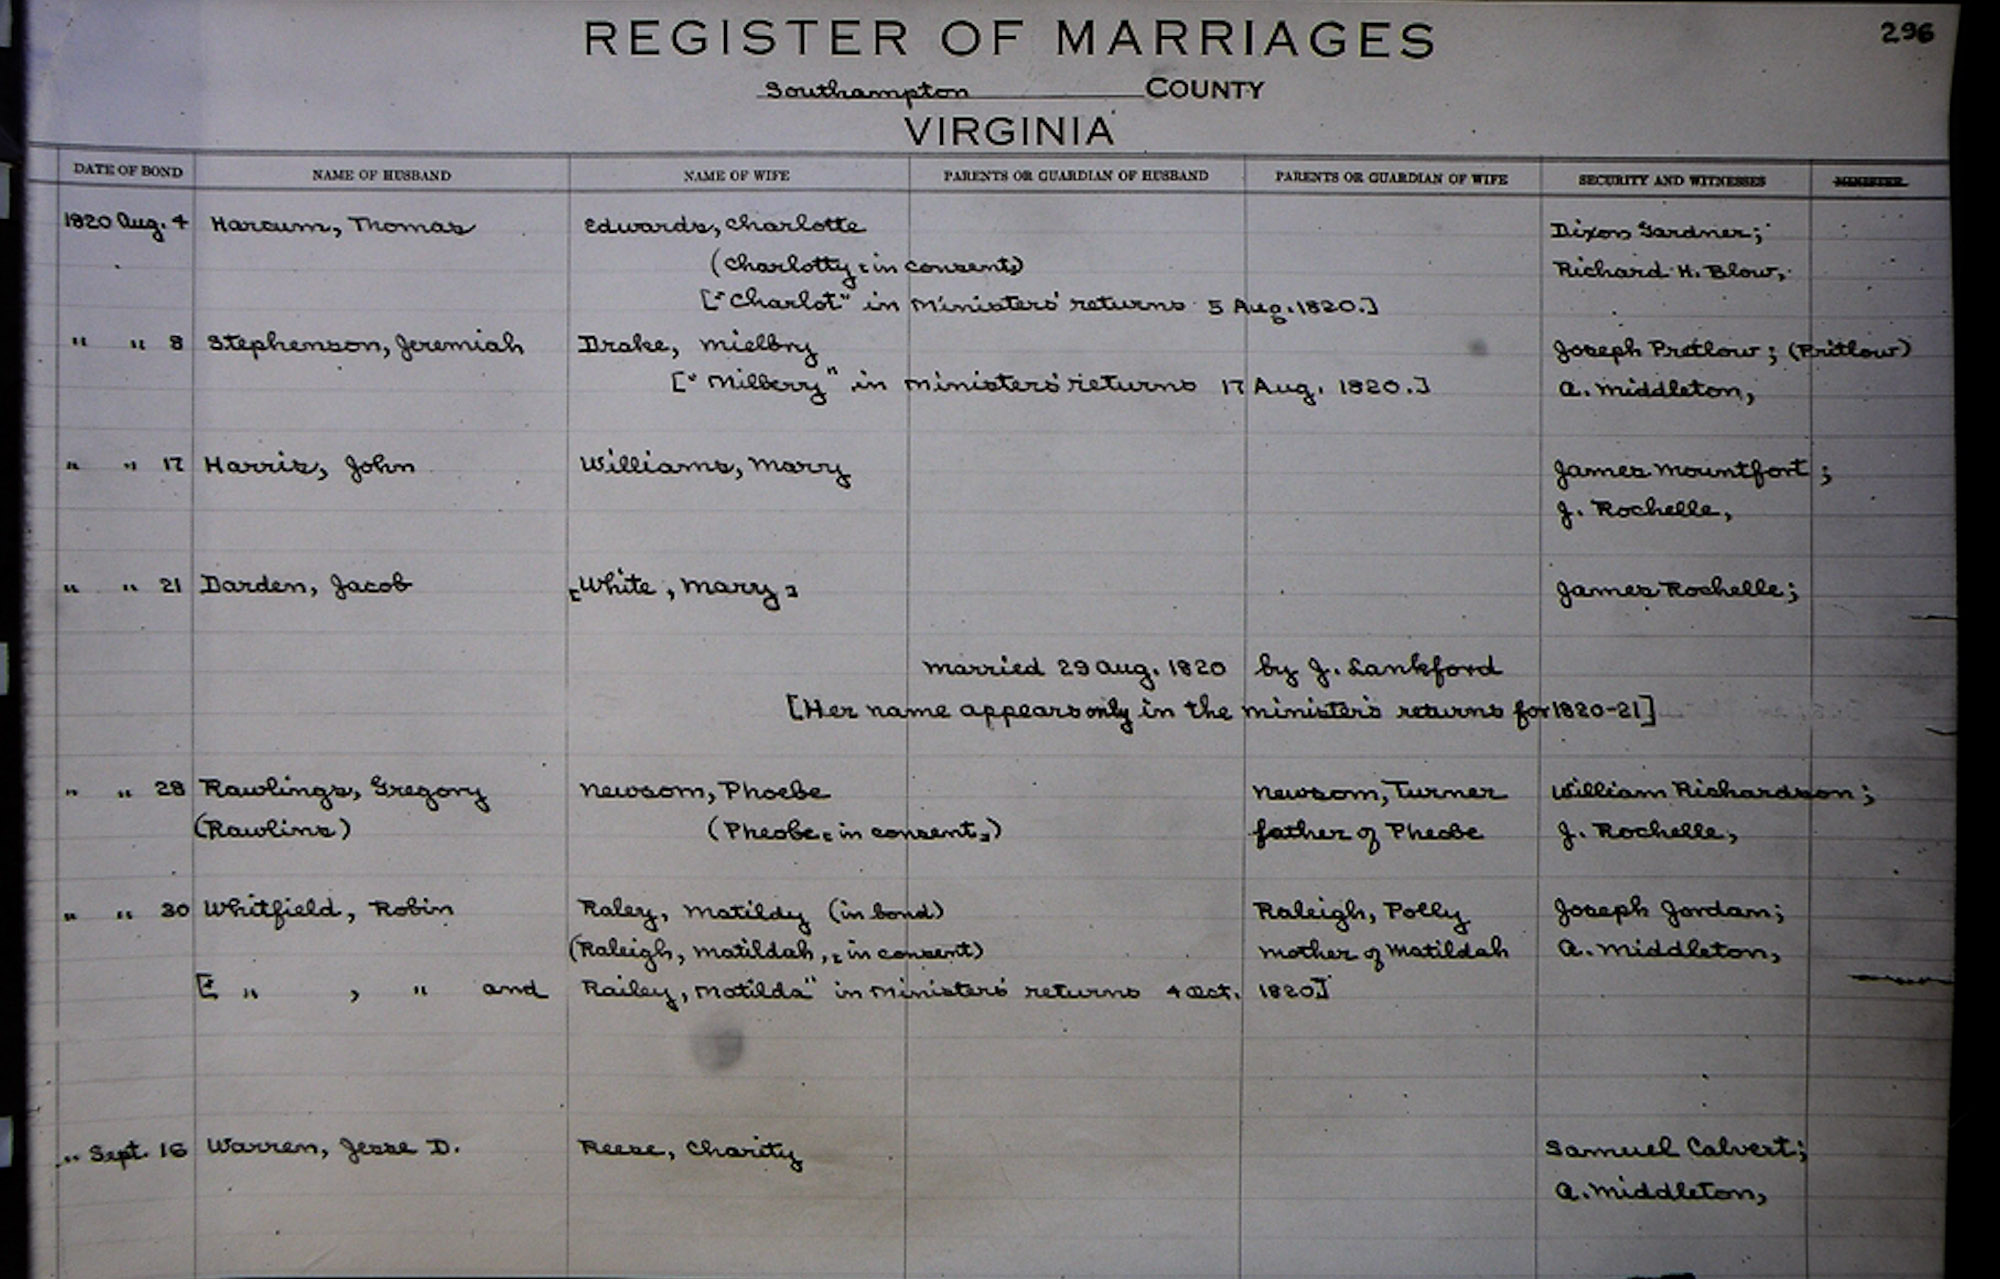 REGISTER OF MARRIAGES 296
Southampton COUNTY
VIRGINIA
DATE OF BOND NAME OF HUSBAND NAME OF WIFE PARENTS OR GUARDIAN OF HUSBAND PARENTS OR GUARDIAN OF WIFE SECURITY AND WITNESSES MINISTER
1820 Aug. 4 Harcum, Thomas Edwards, Charlotte Dixon Gardner;
(Charlotty [in consent]) Richard H. Blow,
["Charlot" in Ministers' returns 5 Aug. 1820.]
" " 8 Stephenson, Jeremiah Drake, Mielbry Joseph Pretlow; (Pritlow)
["Milberry" in Ministers' returns 17 Aug. 1820.] A. Middleton,
" " 17 Harris, John Williams, Mary James Mountfort;
J. Rochelle,
" " 21 Darden, Jacob [White, Mary] James Rochelle;
Married 29 Aug. 1820 by J. Lankford
[Her name appears only in the minister's returns for 1820-21]
" " 28 Rawlings, Gregory Newsom, Phoebe Newsom, Turner William Richardson;
(Rawlins) (Pheobe [in consent]) father of Pheobe J. Rochelle,
" " 30 Whitfield, Robin Raley, Matildy (in bond) Raleigh, Polly Joseph Jordan;
(Raleigh, Matildah, [in consent) mother of Matildah A. Middleton,
[" " , " and Railey, Motilda" in Ministers' returns 4 Oct. 1820]
" Sept. 16 Warren, Jesse D. Reese, Charity Samuel Calvert;
A. Middleton,